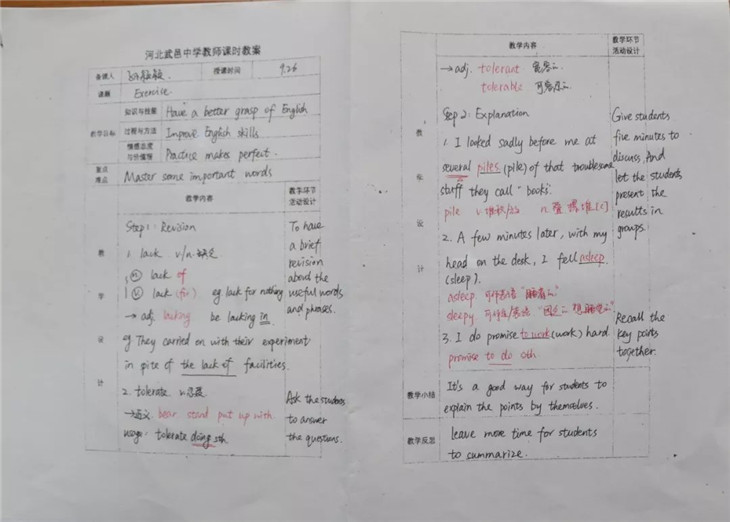 河北武邑中学教师课时教案
备课人
授课时间 9.26
课题 Exercise
教学目标
知识与技能 Have a better grasp of English
过程与方法 Improve English skills.
情感态度与价值观 Practice makes perfect.
重点难点 Master some important words
教学内容
教学环节活动设计
教学设计
Step 1: Revision
1. lack v/n 缺乏
n lack of
v lack (for) eg lack for nothing
→ adj. lacking be lacking in
eg They carried on with their experiment
in pite of the lack of facilities.
2. tolerate v. 忍受
→ 近义 bear stand put up with
usage: tolerate doing sth
To have
a brief
revision
about the
useful words
and phrases.
Ask the students
to answer
the questions.
教学内容
教学环节活动设计
教学设计
→ adj. tolerant
tolerable
Step 2: Explanation
1. I looked sadly before me at
several piles (pile) of that troublesome
stuff they call "books".
pile
2. A few minutes later, with my
head on the desk, I fell asleep.
(sleep).
asleep
sleepy
3. I do promise to work (work) hard
promise to do sth
Give students
five minutes to
discuss, And
let the students
present the
results in
groups.
Recall the
key points
together.
教学小结 It's a good way for students to
explain the points by themselves.
教学反思 leave more time for students
to summarize.